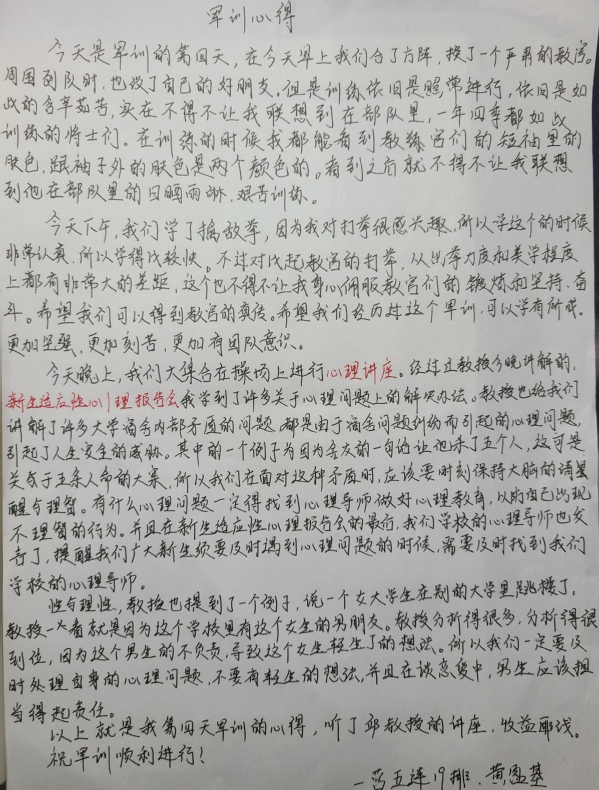 军训心得
今天是军训的第四天，在今天早上我们合了方阵，换了一个严肃的教官。
周围列队时，也没了自己的好朋友。但是训练依旧是照常进行，依旧是如
此的含辛茹苦，实在不得不让我联想到在部队里，一年四季都如此
训练的将士们。在训练的时候我都能看到教练官们的短袖里的
肤色，跟袖子外的肤色是两个颜色的。看到之后就不得不让我联想
到他在部队里的日晒雨淋，艰苦训练。
今天下午，我们学了擒敌拳，因为我对打拳很感兴趣，所以学这个的时候
非常认真，所以学得比较快。不过对比起教官的打拳，从出拳力度和美学程度
上都有非常大的差距，这个也不得不让我身心佩服教官们的锻炼和坚持、奋
斗。希望我们可以得到教官的真传。希望我们经历过这个军训，可以学有所成。
更加坚强，更加刻苦，更加有团队意识。
今天晚上，我们大集合在操场上进行心理讲座。经过邱教授今晚讲解的，
新生适应性心理报告会我学到了许多关于心理问题上的解决办法。教授也给我们
讲解了许多大学宿舍内部矛盾的问题，都是由于宿舍问题纠纷而引起的心理问题，
引起了人生安全的威胁。其中的一个例子为因为舍友的一句话让他杀了五个人，这可是
关乎于五条人命的大案，所以我们在面对这种矛盾时，应该要时刻保持大脑的清
醒与理智。有什么心理问题一定得找到心理导师做好心理教育，以防自己出现
不理智的行为。并且在新生适应性心理报告会的最后，我们学校的心理导师也发
言了，提醒我们广大新生须要及时遇到心理问题的时候，需要及时找到我们
学校的心理导师。
性与理性，教授也提到了一个例子，说一个女大学生在别的大学里跳楼了，
教授一看就是因为这个学校里有这个女生的男朋友。教授分析得很多，分析得很
到位，因为这个男生的不负责，导致这个女生轻生了的想法。所以我们一定要及
时处理自身的心理问题，不要有轻生的想法，并且在谈恋爱中，男生应该担
当得起责任。
以上就是我第四天军训的心得，听了邱教授的讲座，收益匪浅。
祝军训顺利进行！
一营五连19排 黄盈基